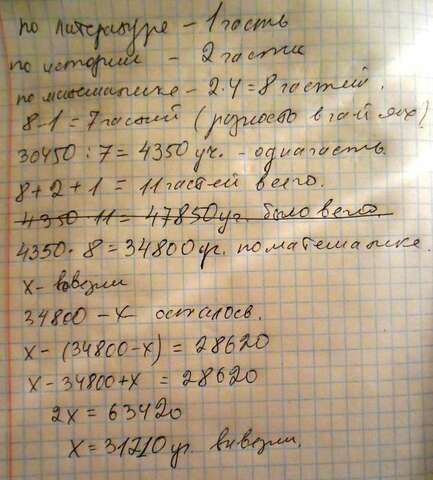 по литературе - 1 часть
по истории - 2 части
по математике - 2·4 = 8 частей.
8-1 = 7 частей (разность в частях)
30450 : 7 = 4350 уч. - одна часть
8+2+1 = 11 частей всего.
4350·11 = 47850 уч. было всего
4350·8 = 34800 уч. по математике.
х - вывезли
34800 - х осталось.
х - (34800-х) = 28620
х - 34800+х = 28620
2х = 63420
х = 31710 уч. вывезли.